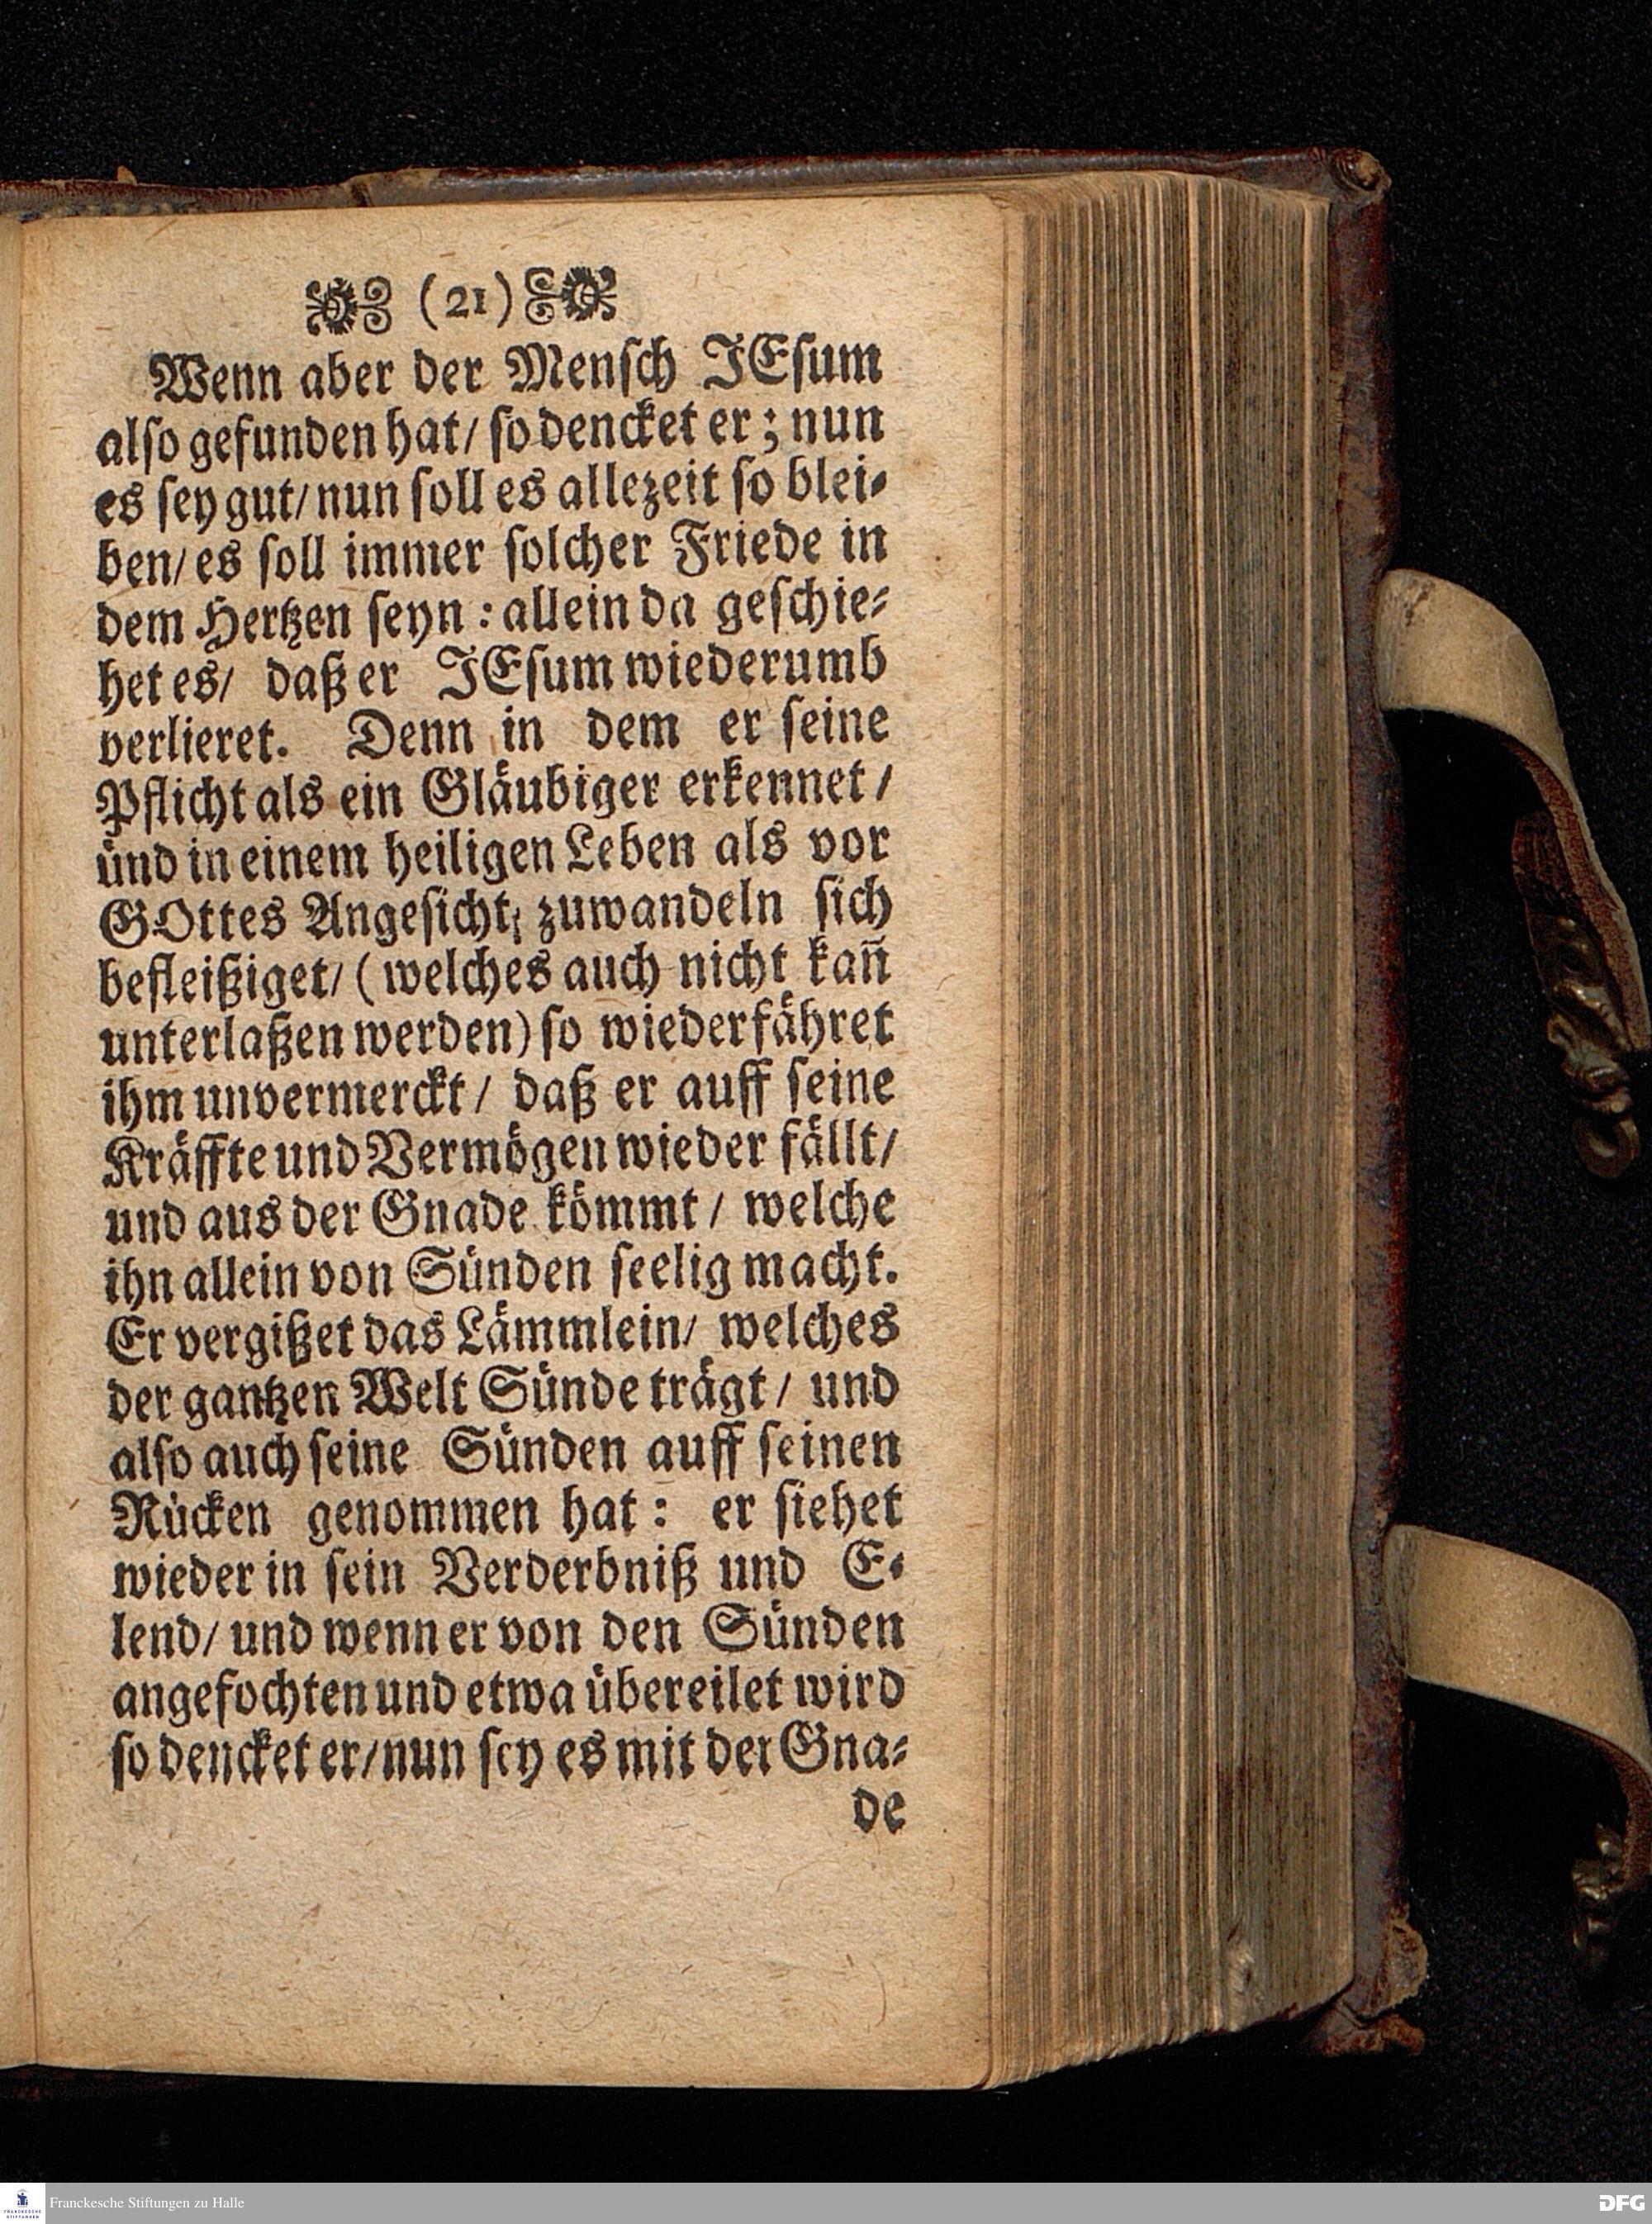 (21)
Wenn aber der Mensch JEsum
also gefunden hat/ so dencket er; nun
es sey gut/ nun soll es allezeit so blei-
ben/ es soll immer solcher Friede in
dem Hertzen seyn: allein da geschie-
het es/ daß er JEsum wiederumb
verlieret. Denn in dem er seine
Pflicht als ein Gläubiger erkennet/
und in einem heiligen Leben als vor
GOttes Angesicht, zuwandeln sich
befleißiget/ (welches auch nicht kañ
unterlaßen werden) so wiederfähret
ihm unvermerckt/ daß er auff seine
Kräffte und Vermögen wieder fällt/
und aus der Gnade kömmt/ welche
ihn allein von Sünden seelig macht.
Er vergißet das Lämmlein/ welches
der gantzen Welt Sünde trägt/ und
also auch seine Sünden auff seinen
Rücken genommen hat: er siehet
wieder in sein Verderbniß und E-
lend/ und wenn er von den Sünden
angefochten und etwa übereilet wird
so dencket er/ nun sey es mit der Gna-
de
Franckesche Stiftungen zu Halle
FRANCKESCHE
STIFTUNGEN
DFG